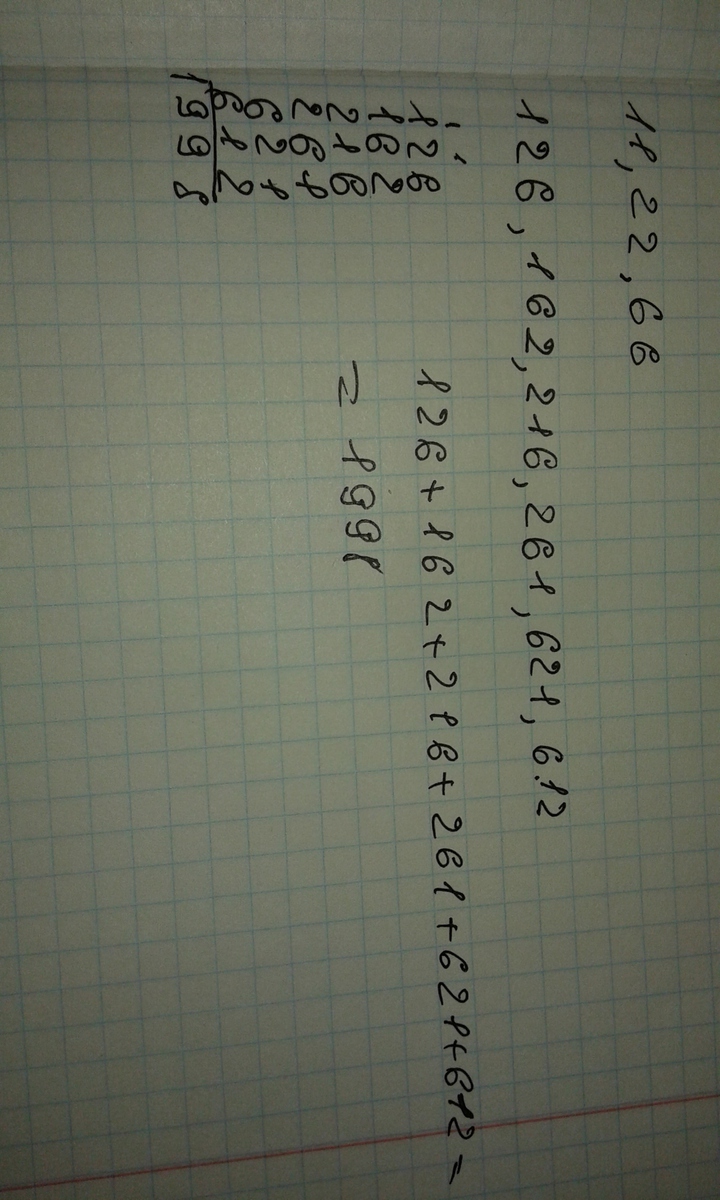 11, 22, 66
126, 162, 216, 261, 621, 612
126+162+216+261+621+612=
= 1998
126
162
216
261
621
612
1998